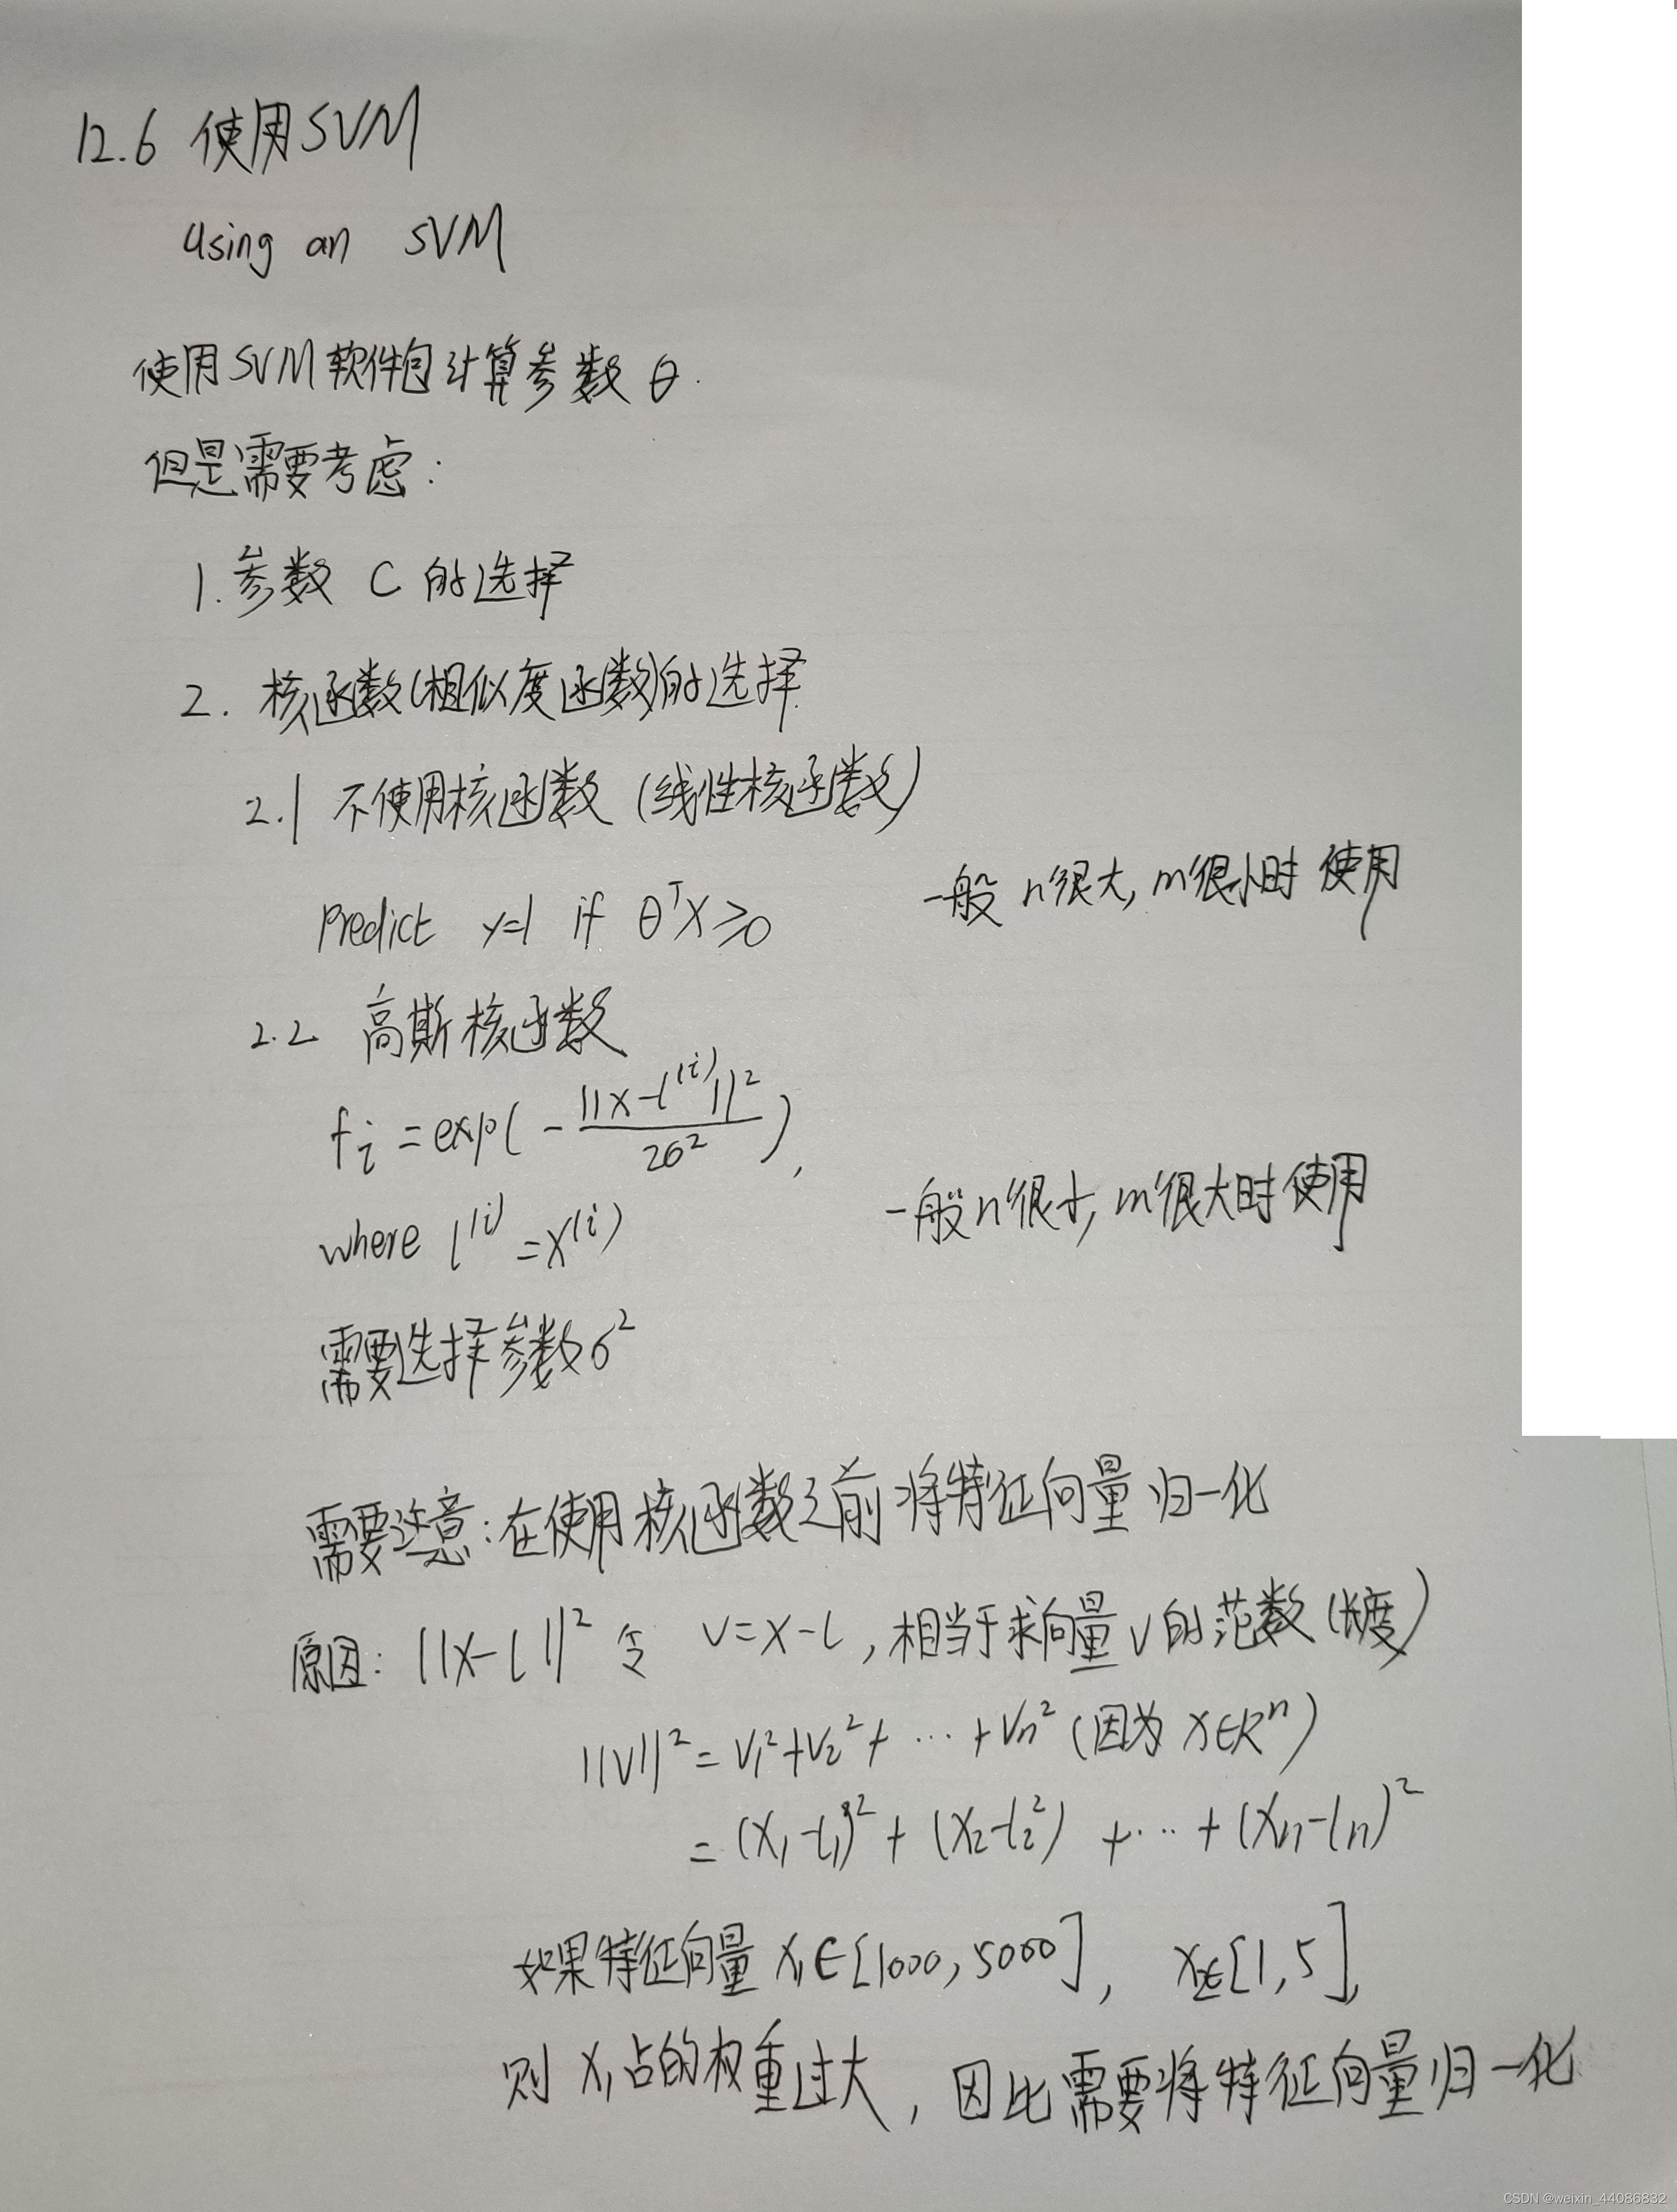 12.6 使用SVM
Using an SVM
使用SVM软件包计算参数 θ.
但是需要考虑:
1. 参数 C 的选择
2. 核函数(相似度函数)的选择.
2.1 不使用核函数 (线性核函数)
predict y=1 if θᵀX≥0 一般 n很大, m很小时 使用
2.2 高斯核函数
fᵢ = exp( - ||x-l⁽ⁱ⁾||² / 2σ² ),
where l⁽ⁱ⁾ = x⁽ⁱ⁾ 一般n很小, m很大时使用
需要选择参数σ²
需要注意: 在使用核函数之前将特征向量 归一化
原因: ||x-l||² 令 v=x-l, 相当于求向量 v 的范数 (长度)
||v||² = v₁²+v₂²+ ··· +vₙ² (因为 x∈Rⁿ)
= (x₁-l₁)² + (x₂-l₂²) +··· + (xₙ-lₙ)²
如果特征向量 x₁∈[1000, 5000], x₂∈[1, 5],
则 x₁占的权重过大, 因此需要将特征向量归一化
CSDN @weixin_44086832